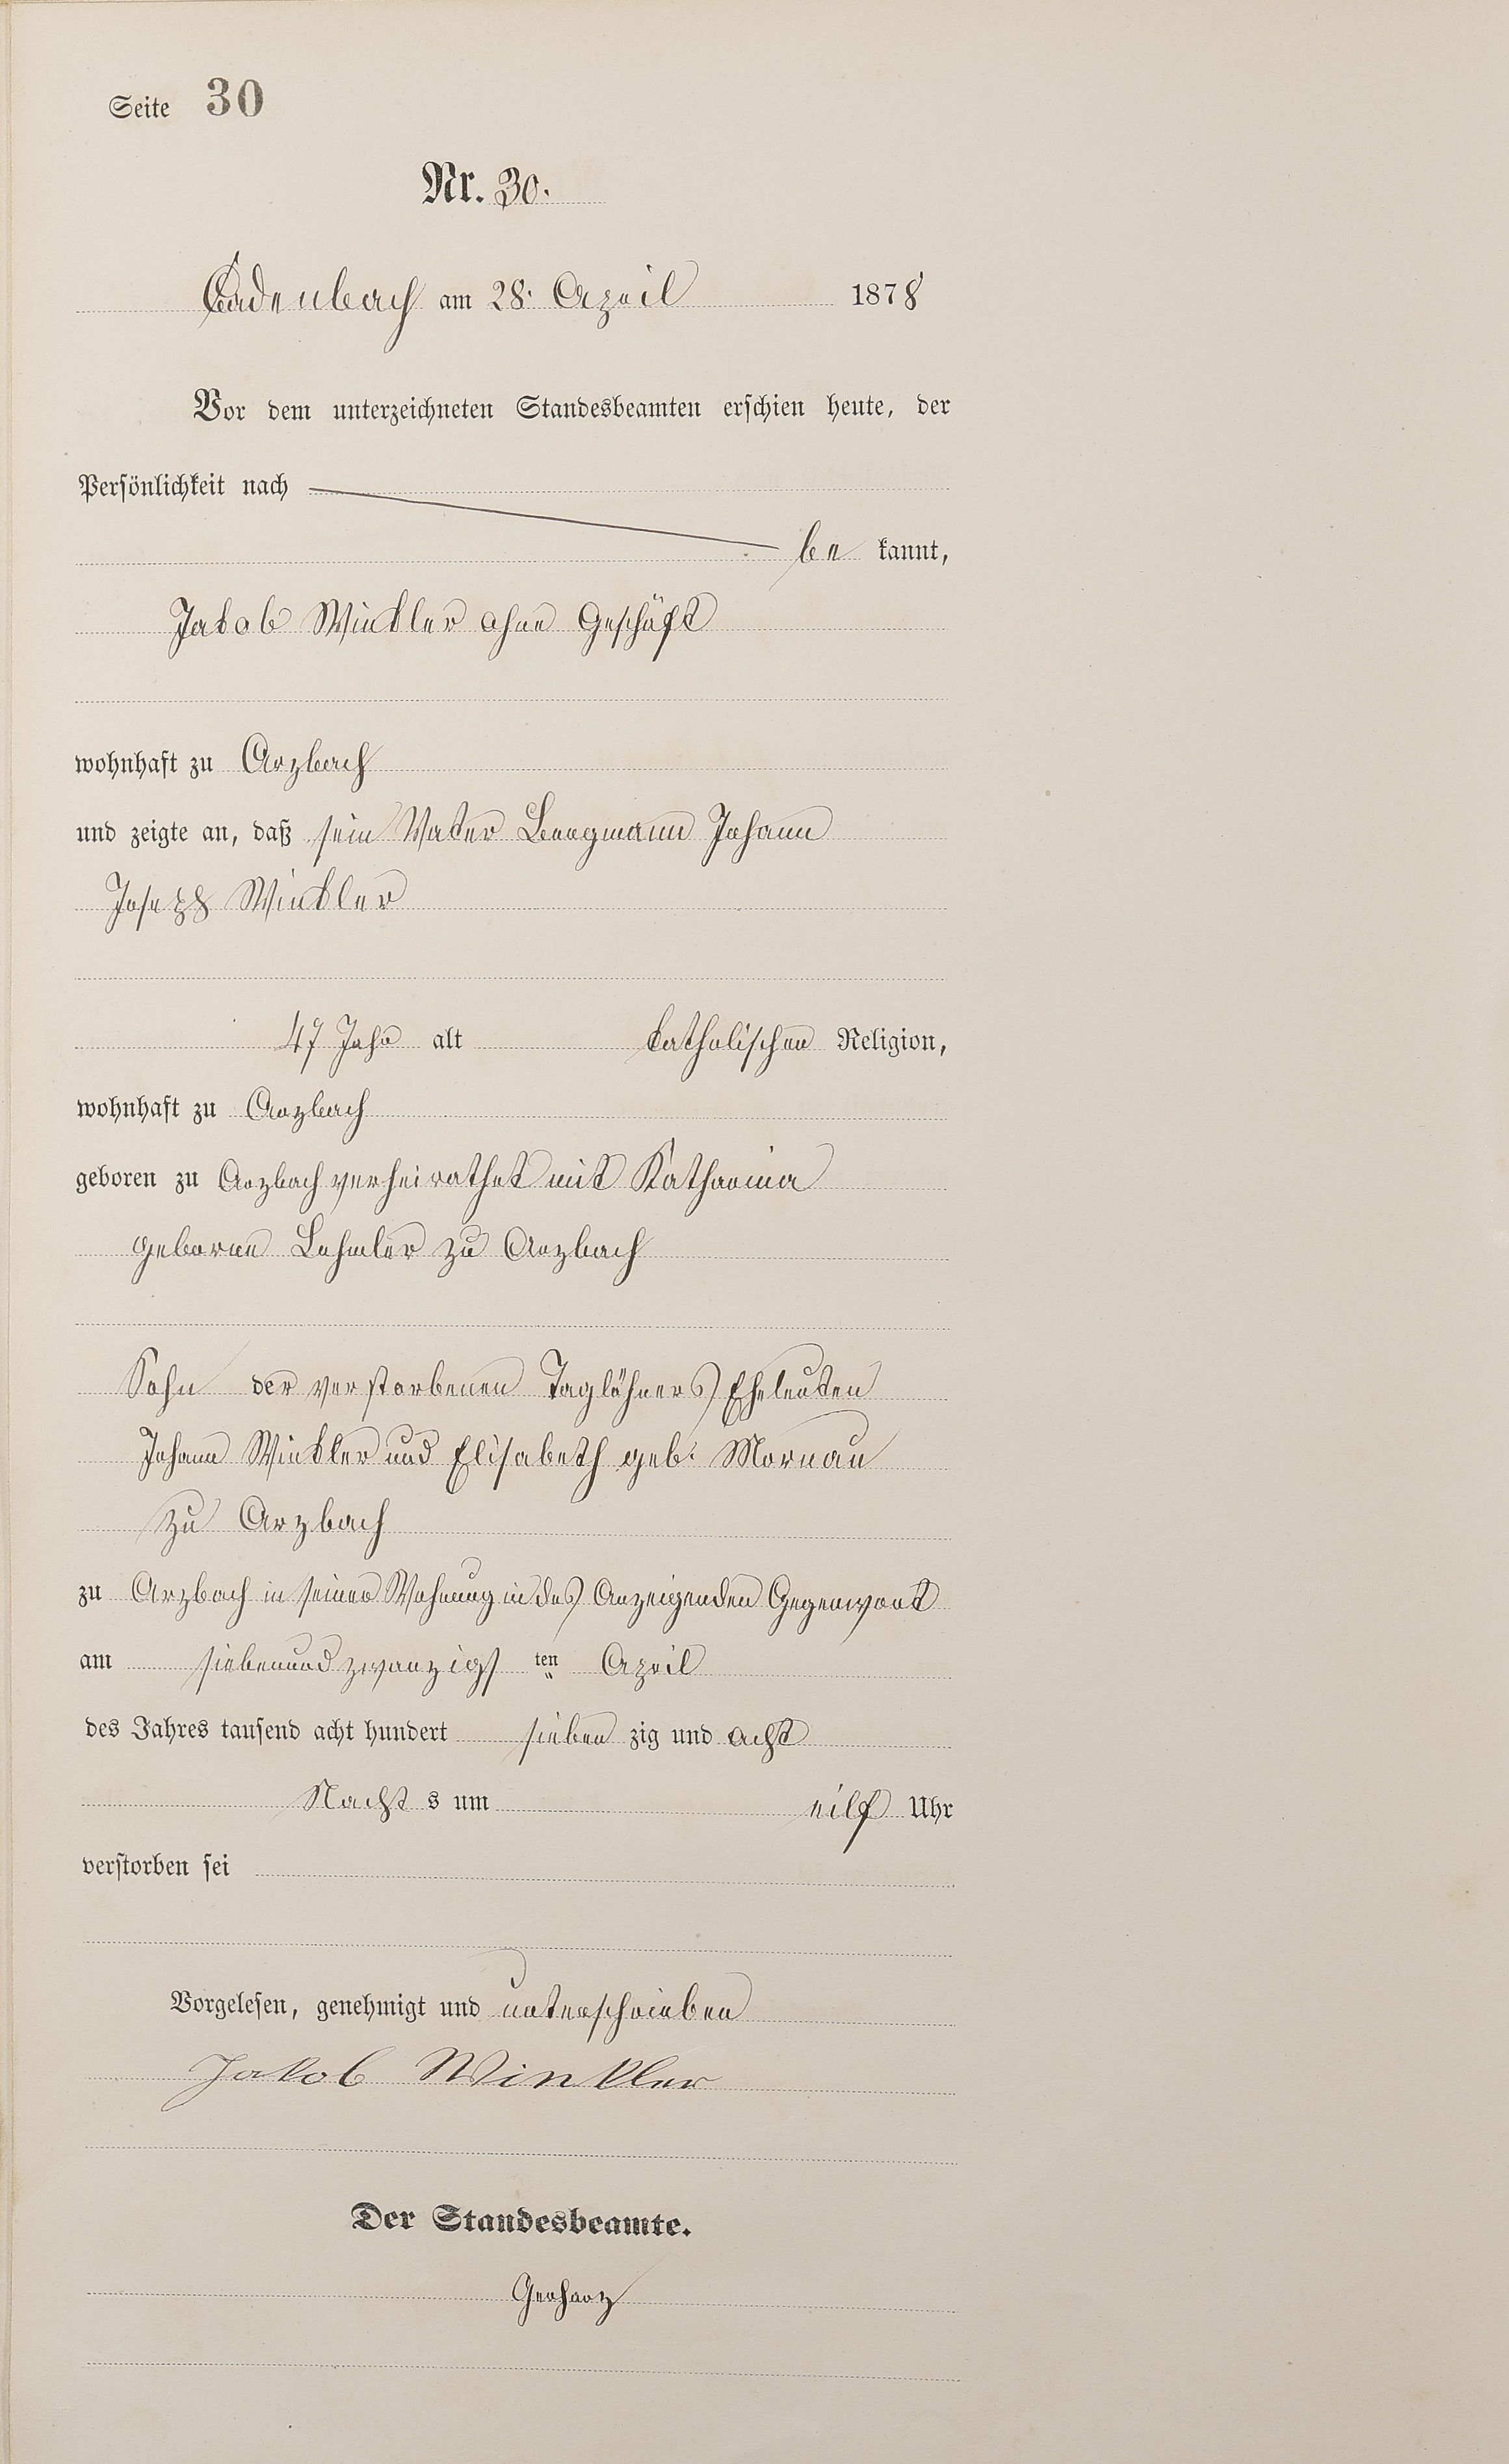 Seite 30
Nr. 30.
Cadenbach am 28. April 1878
Vor dem unterzeichneten Standesbeamten erschien heute, der
Persönlichkeit nach
be kannt,
Jakob Winkler ohne Geschäft
wohnhaft zu Arzbach
und zeigte an, daß sein Vater Bergmann Johann
Joseph Winkler
47 Jahr alt katholischen Religion,
wohnhaft zu Arzbach
geboren zu Arzbach verheirathet mit Katharina
geborne Lehmler zu Arzbach
Sohn der verstorbenen Taglöhners Eheleuten
Johann Winkler und Elisabeth geb. Mornau
zu Arzbach
zu Arzbach in seiner Wohnung in des Anzeigenden Gegenwart
am siebenundzwanzigs ten April
des Jahres tausend acht hundert sieben zig und acht
Nacht s um eilf Uhr
verstorben sei
Vorgelesen, genehmigt und unterschrieben
Jakob Winkler
Der Standesbeamte.
Gerharz